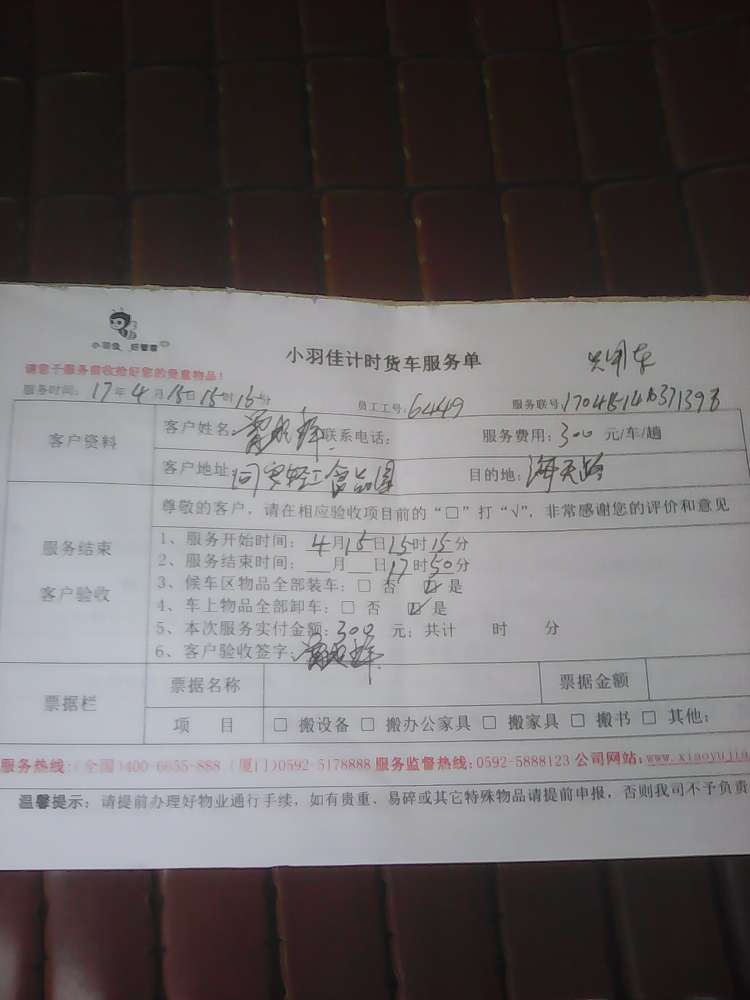 小羽佳 好管家
小羽佳计时货车服务单
请您于服务前收捡好您的贵重物品！
服务时间：17年4月15日15时15分 员工工号：6449 服务联号
客户资料
客户姓名： 联系电话： 服务费用：300元/车/趟
客户地址：同安轻工食品园 目的地：海天路
服务结束
客户验收
尊敬的客户，请在相应验收项目前的“□”打“√”，非常感谢您的评价和意见
1、服务开始时间：4月15日15时15分
2、服务结束时间：___月___日17时50分
3、候车区物品全部装车：□ 否 ☑ 是
4、车上物品全部卸车：□ 否 ☑ 是
5、本次服务实付金额：300元；共计 时 分
6、客户验收签字：
票据栏
票据名称 票据金额
项 目 □ 搬设备 □ 搬办公家具 □ 搬家具 □ 搬书 □ 其他：
服务热线：(全国)400-6655-888 (厦门)0592-5178888 服务监督热线：0592-5888123 公司网站：www.xiaoyujia
温馨提示：请提前办理好物业通行手续，如有贵重、易碎或其它特殊物品请提前申报，否则我司不予负责